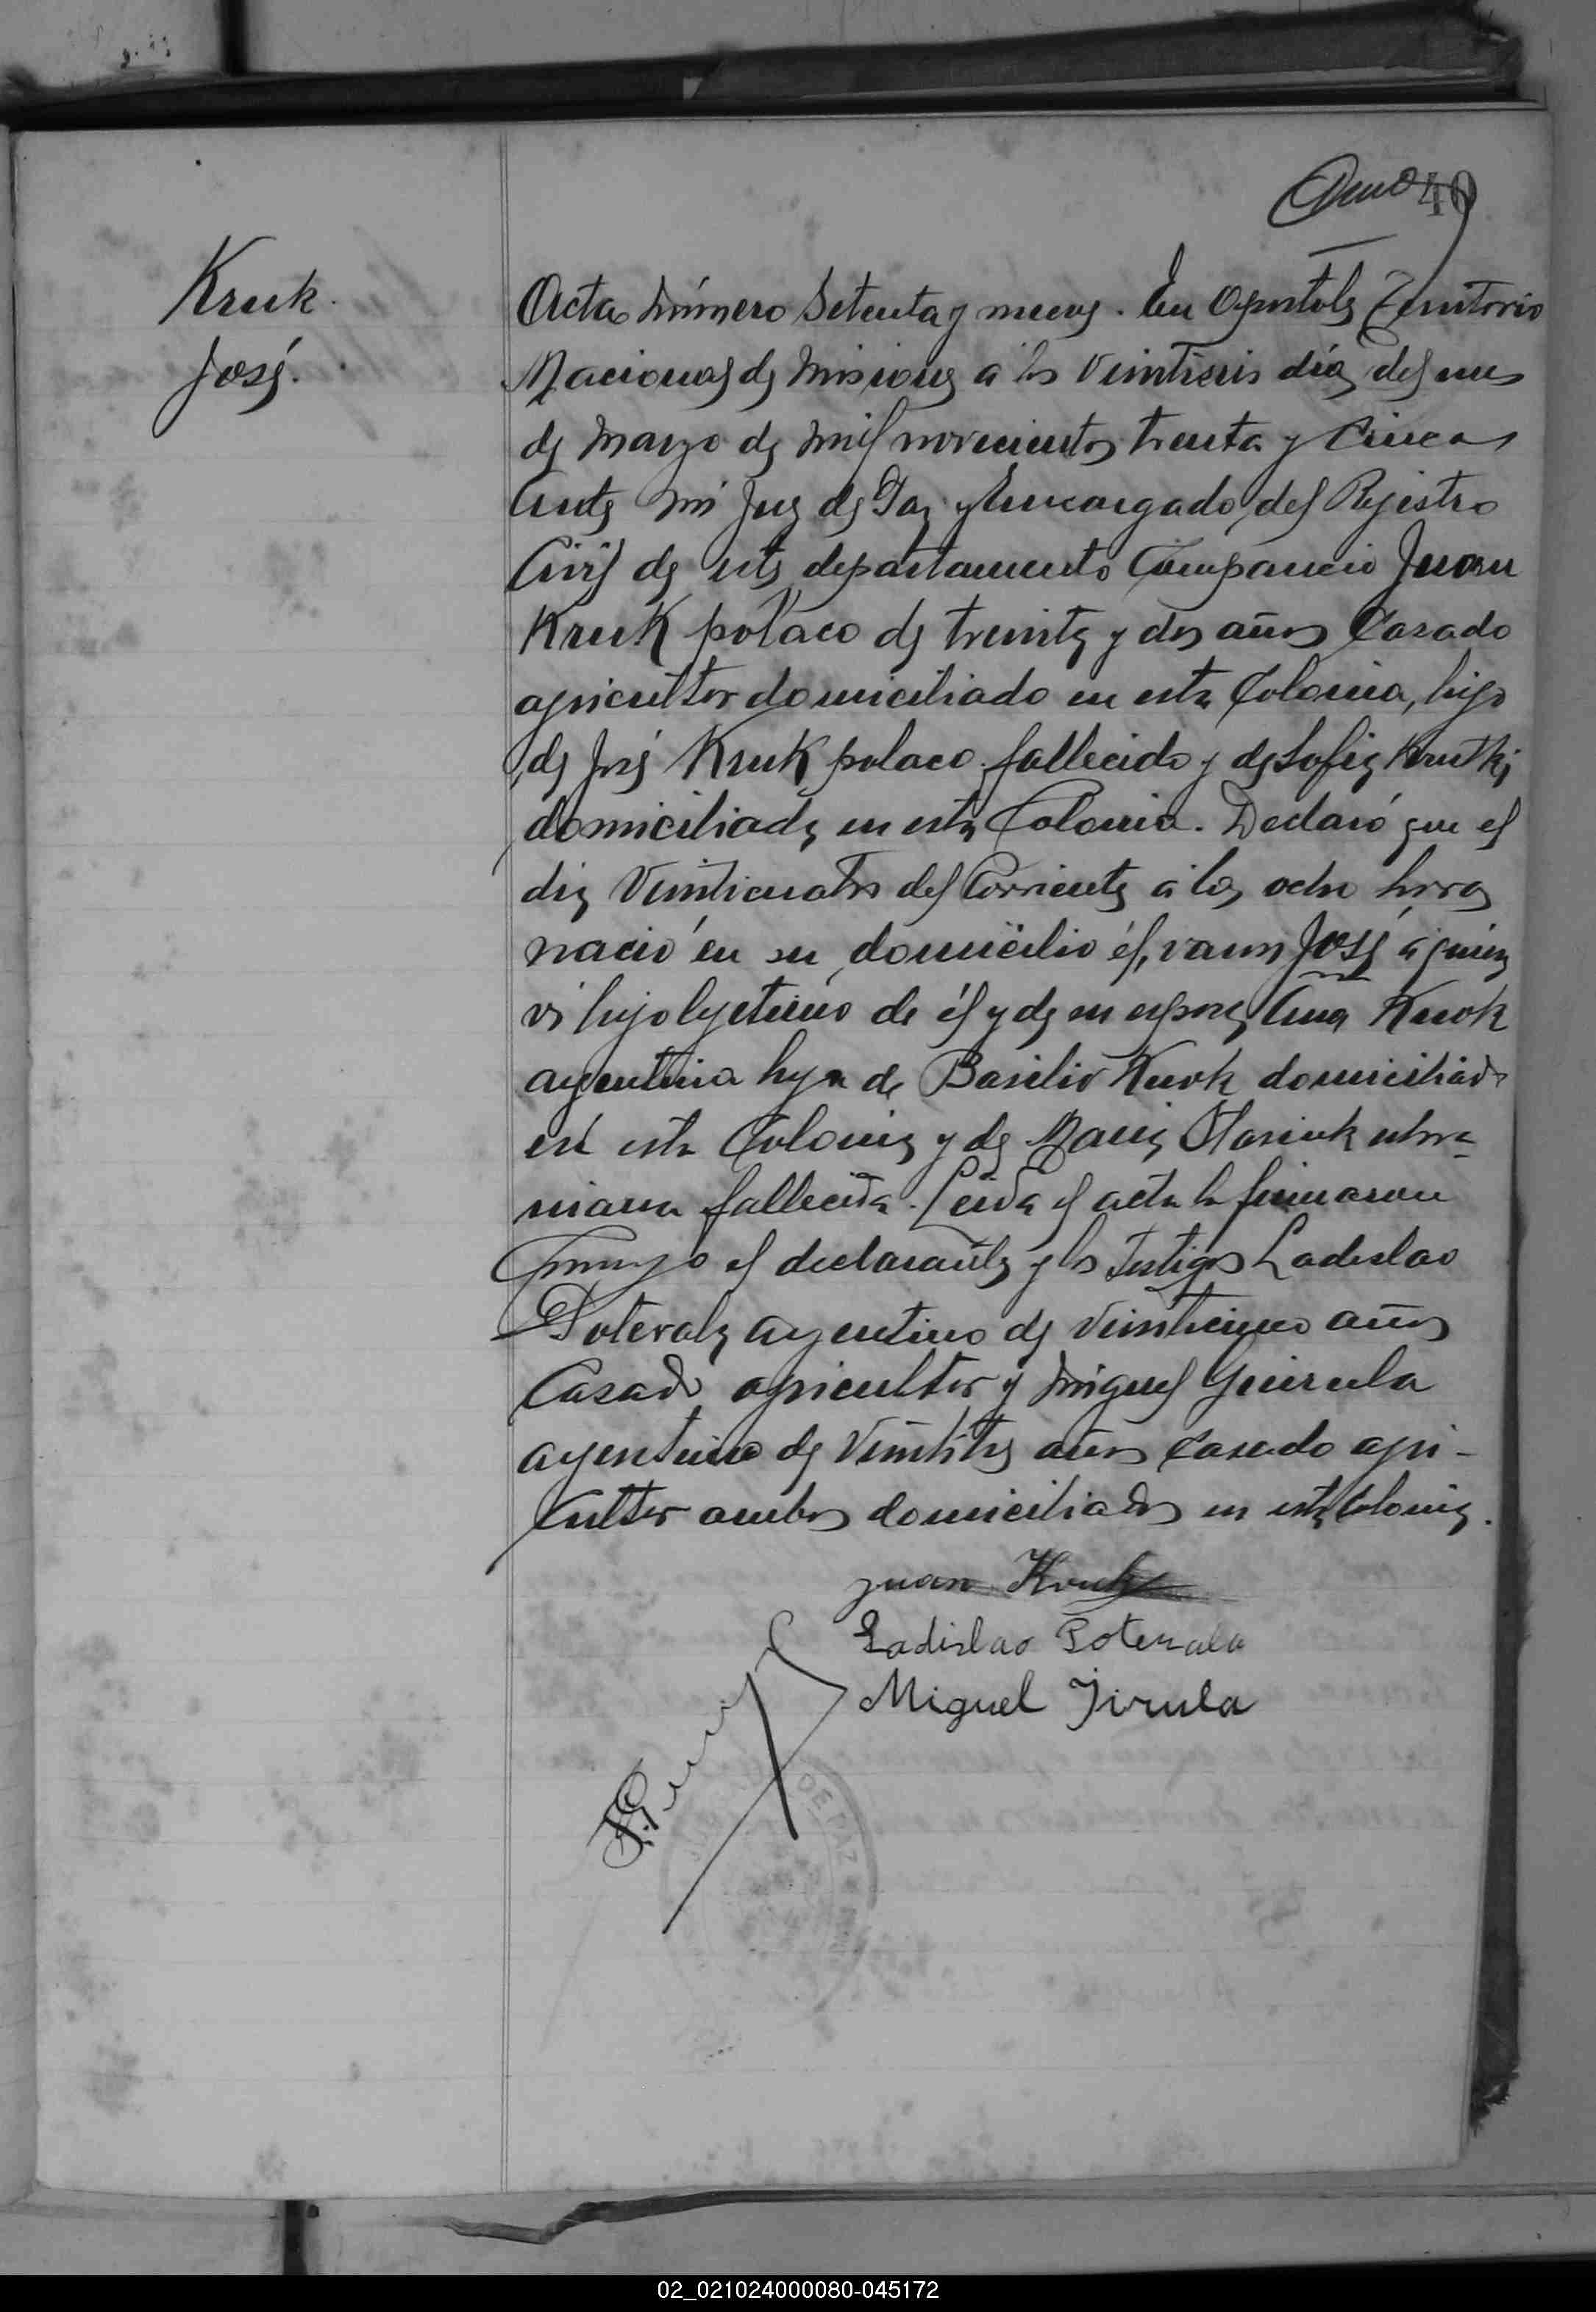 40
Kruk
José.
Acta número Setenta y nueve. En Apostoles Territorio
Nacional de Misiones a los Veintiseis días del mes
de Marzo de mil novecientos treinta y cinco
Ante mi Juez de Paz y Encargado del Rejistro
Civil de este departamento Compareció Juan
Kruk polaco de treinta y dos años Casado
agricultor domiciliado en esta Colonia, hijo
de José Kruk polaco fallecido y de Sofia
domiciliada en esta Colonia. Declaró que el
dia Veinticuatro del Corriente a las ocho horas
nació en su domicilio él, varon José a quien
vi hijo lejitimo de él y de su esposa Ana Kruk
argentina hija de Basilio Kruk domiciliado
en esta Colonia y de Maria Stasiuk ukra-
niana fallecida. Leida el acta la firmaron
conmigo el declarante y los Testigos Ladislao
Poterala argentino de Veinticinco años
Casado agricultor y Miguel
argentino de Veintitres años Casado agri-
cultor ambos domiciliados en esta Colonia.
Juan Kruk
Ladislao Poterala
Miguel Jirula
DE PAZ
02_021024000080-045172